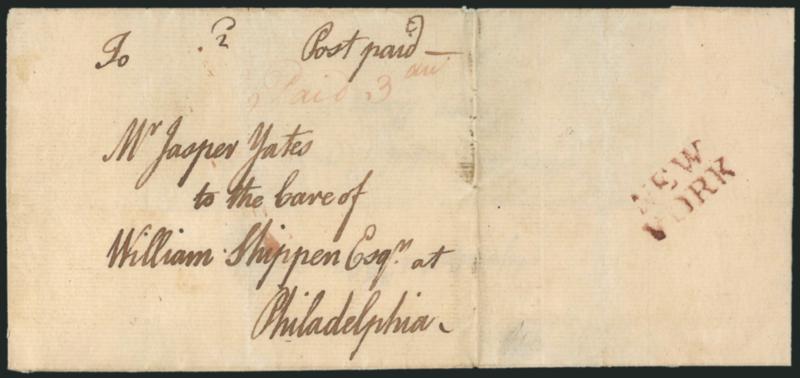 To Post paid
Paid 3 dw
Mr Jasper Yates
to the Care of
William Shippen Esqr at
Philadelphia
NEW
YORK